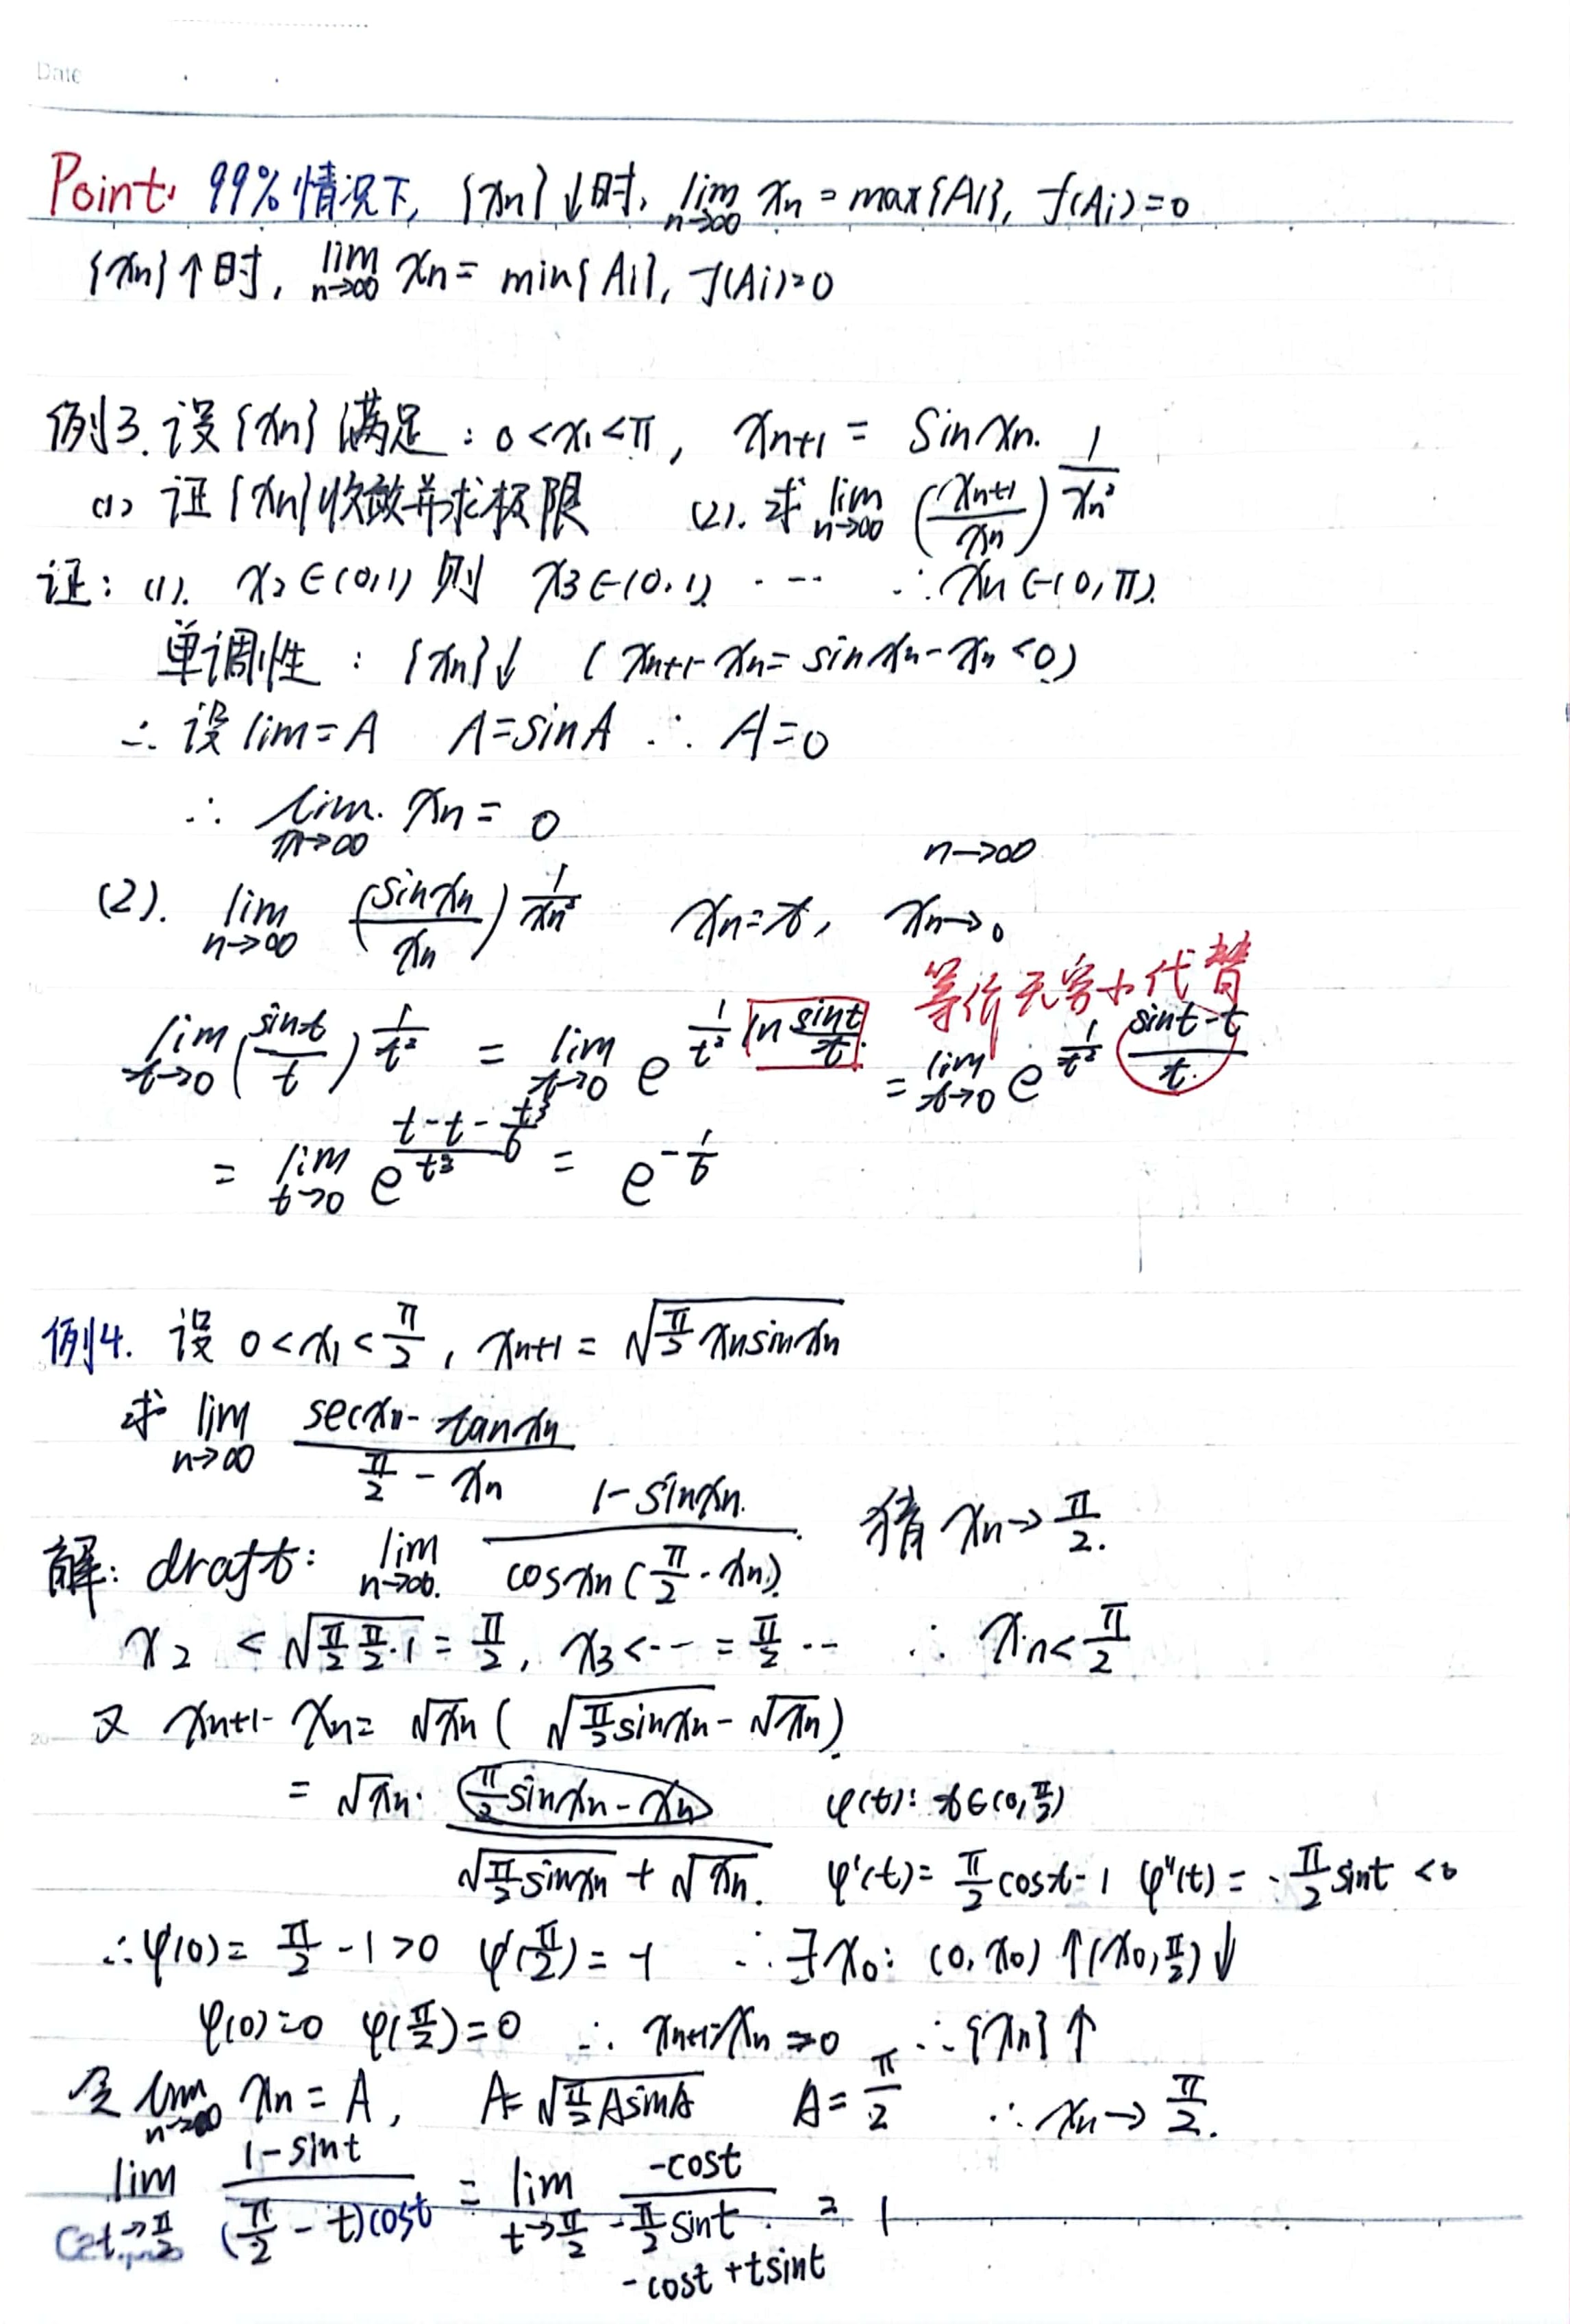 Date
Point: 99%情况下, {xn}↓时, lim n→∞ xn = max{Ai}, f(Ai)=0
{xn}↑时, lim n→∞ xn = min{Ai}, f(Ai)=0
例3. 设{xn}满足: 0<x1<π, xn+1 = sinxn.
(1) 证{xn}收敛并求极限 (2). 求 lim n→∞ (xn+1/xn)^(1/xn²)
证: (1). x2∈(0,1) 则 x3∈(0,1) ... ∴xn∈(0,π).
单调性: {xn}↓ (xn+1-xn=sinxn-xn<0)
∴ 设lim=A A=sinA ∴ A=0
∴ lim n→∞ xn = 0
(2). lim n→∞ (sinxn/xn)^(1/xn²) xn=t, n→∞ xn→0
等价无穷小代替
lim t→0 (sint/t)^(1/t²) = lim t→0 e^(1/t² ln sint/t) = lim t→0 e^(1/t² (sint-t)/t)
= lim t→0 e^((t-t-t³/6)/t³) = e^(-1/6)
例4. 设 0<x1<π/2, xn+1 = √(π/2 xnsinxn)
求 lim n→∞ (secxn-tanxn)/(π/2-xn)
解: draft: lim n→∞. (1-sinxn.)/(cosxn(π/2-xn)) 猜 xn→π/2.
x2 < √(π/2 π/2·1) = π/2, x3<-- = π/2 -- ∴ xn<π/2
又 xn+1-xn= √xn(√(π/2 sinxn)-√xn).
= √xn· (π/2 sinxn-xn)/(√(π/2 sinxn)+√xn.) φ(t): t∈(0,π/2)
φ'(t)= π/2 cost-1 φ''(t)= -π/2 sint <0
∴φ'(0)= π/2 -1>0 φ'(π/2)= -1 ∴∃x0: (0,x0)↑(x0,π/2)↓
φ(0)=0 φ(π/2)=0 ∴ xn+1-xn>0 ∴{xn}↑
令 lim n→∞ xn = A, A=√(π/2 AsinA) A= π/2 ∴xn→π/2.
lim t→π/2 (1-sint)/((π/2-t)cost) = lim t→π/2 -cost/(-π/2 sint -cost+tsint) = 1